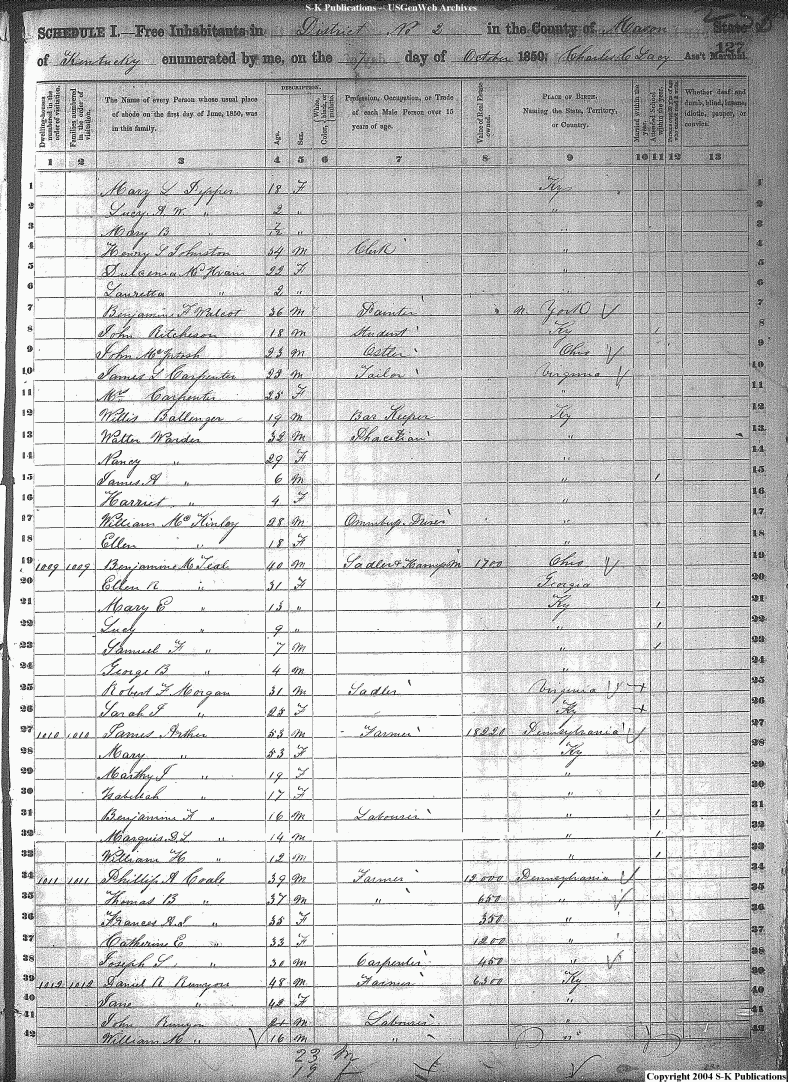 S-K Publications -- USGenWeb Archives
SCHEDULE I.—Free Inhabitants in District No 2 in the County of Mason State
of Kentucky enumerated by me, on the 7 day of October 1850. Charles C Lacy Ass't Marshal. 127
Dwelling-houses numbered in the order of visitation.
Families numbered in the order of visitation.
The Name of every Person whose usual place of abode on the first day of June, 1850, was in this family.
DESCRIPTION.
Age.
Sex.
Color, White, black, or mulatto.
Profession, Occupation, or Trade of each Male Person over 15 years of age.
Value of Real Estate owned.
PLACE OF BIRTH. Naming the State, Territory, or Country.
Married within the year.
Attended School within the year.
Whether deaf and dumb, blind, insane, idiotic, pauper, or convict.
1 2 3 4 5 6 7 8 9 10 11 12 13
1 Mary L Pepper 18 F Ky 1
2 Lucy A. W. " 2 " " 2
3 Mary B " 7/12 " " 3
4 Henry S Johnston 54 M Clerk " 4
5 Mc 22 F " 5
6 Lauretta " 2 " " 6
7 Benjamine F Walcot 36 M Painter N. York 7
8 John Ritcheson 18 M Student Ky 1 8
9 John McIntosh 23 M Ostler Ohio 9
10 James L Carpenter 22 M Tailor Virginia 10
11 Mrs Carpenter 25 F " 11
12 Willis Ballenger 19 M Bar Keeper Ky 12
13 Walter Warder 32 M Phacetian " 13
14 Nancy " 29 F " 14
15 James A " 6 M " 1 15
16 Harriet " 4 F " 16
17 William McKinley 28 M Omnibus Driver " 17
18 Ellen " 18 F " 18
19 1009 1009 Benjamine M Teal 40 M Sadler & 1700 Ohio 19
20 Ellen R " 31 F Georgia 20
21 Mary E " 13 " Ky 1 21
22 Lucy " 9 " " 1 22
23 Samuel F " 7 M " 1 23
24 George B " 4 M " 24
25 Robert F Morgan 31 M Sadler Virginia 25
26 Sarah F " 25 F Ky 26
27 1010 1010 James Arthur 53 M Farmer 18220 Pennsylvania 27
28 Mary " 53 F Ky 28
29 Marthy J " 19 F " 29
30 Isabellah " 17 F " 30
31 Benjamine F " 16 M Labourer " 1 31
32 Marquis D. L. " 14 M " 1 32
33 William H " 12 M " 1 33
34 1011 1011 Phillip A Coale 39 M Farmer 12000 Pennsylvania 34
35 Thomas B " 37 M " 650 " 35
36 Frances A. S " 35 F 350 " 36
37 Catherine E " 33 F 1200 " 37
38 Joseph S. " 30 M Carpenter 450 " 38
39 1012 1012 Daniel R Runyon 48 M Farmer 6300 Ky 39
40 Jane " 42 F " 40
41 John Runyon 21 M Labourer " 41
42 William M " 16 M " " 42
23 M
19 F
Copyright 2004 S-K Publications